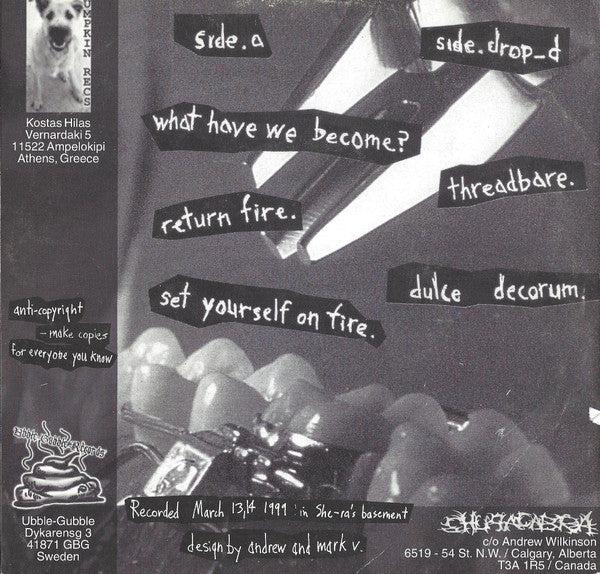 UMPKIN RECS
Kostas Hilas
Vernardaki 5
11522 Ampelokipi
Athens, Greece
side.a
side.drop_d
what have we become?
threadbare.
return fire.
dulce decorum.
set yourself on fire.
anti-copyright
- make copies
for everyobe you know
Ubble-Gubble Records
Ubble-Gubble
Dykarensg 3
41871 GBG
Sweden
Recorded March 13,14 1999 : in She-ra's basement
design by andrew and mark v.
CHUPACABRA
c/o Andrew Wilkinson
6519 - 54 St. N.W. / Calgary, Alberta
T3A 1R5 / Canada